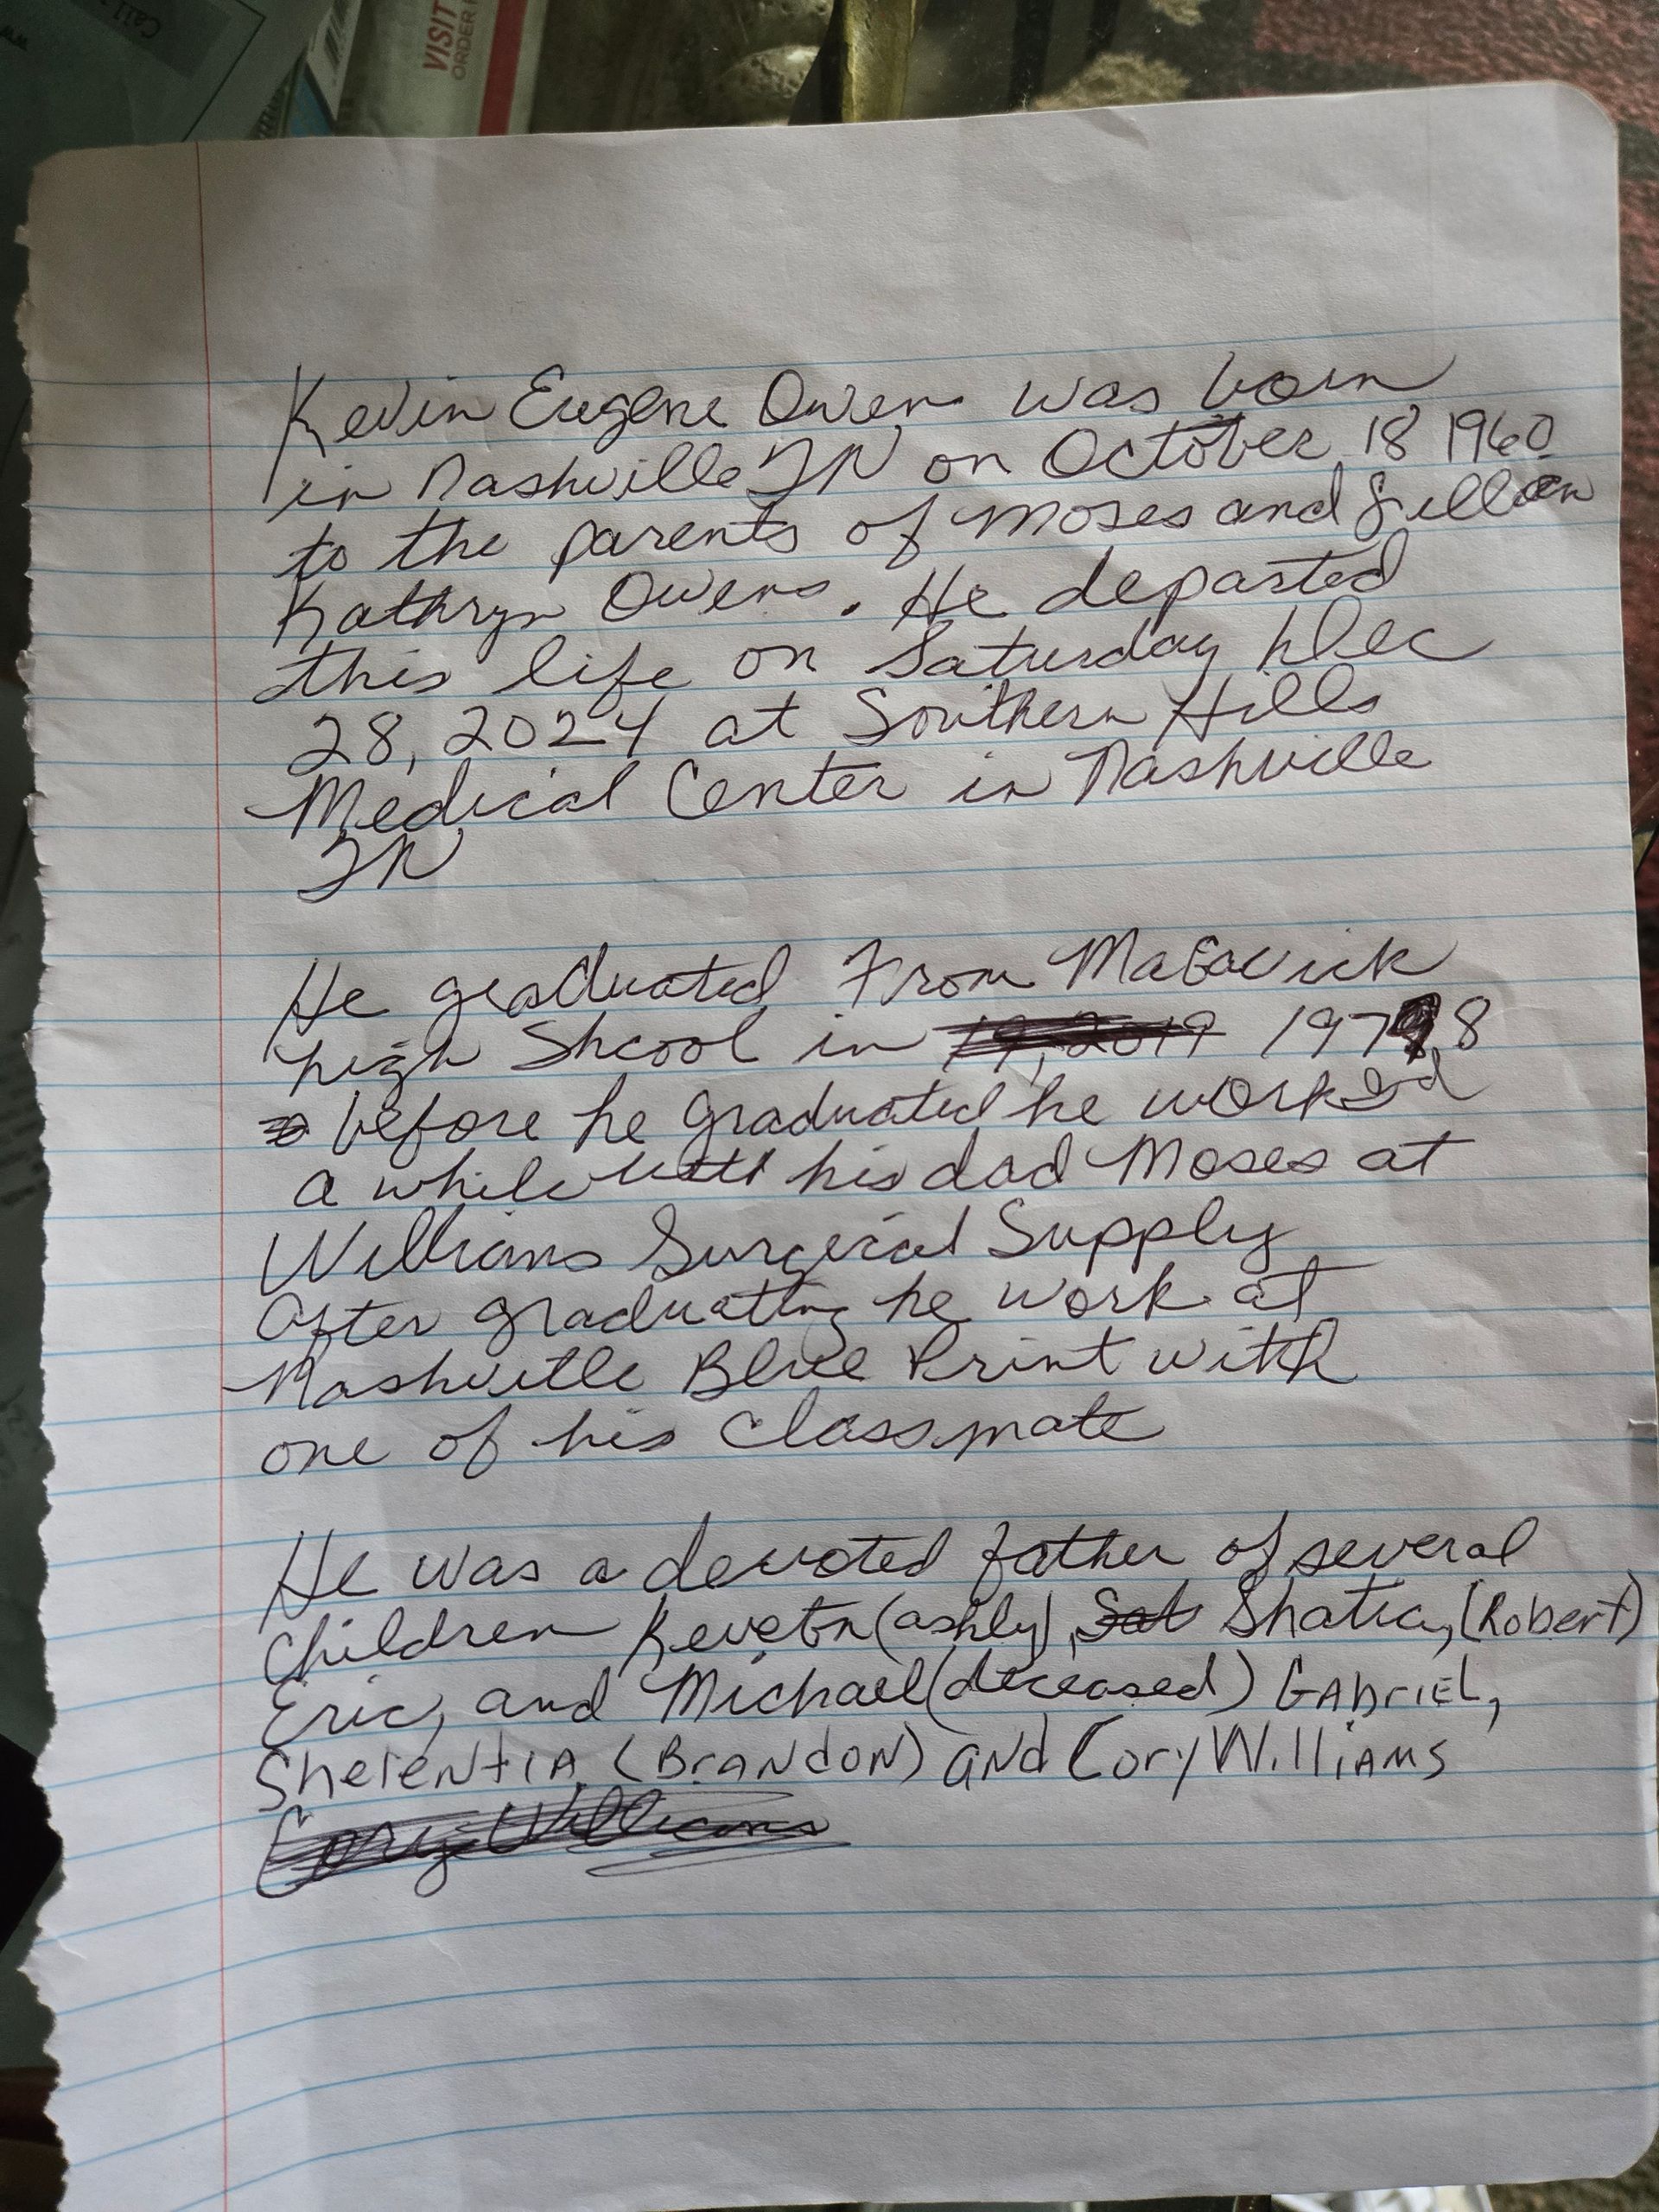 Call
VISIT
ORDER
Kevin Eugene Owens was born
in Nashville TN on October 18 1960
to the parents of Moses and
Kathryn Owens. He departed
this life on Saturday Dec
28, 2024 at Southern Hills
Medical Center in Nashville
TN
He graduated From MaGavick
high Shcool in 19, 2019 1978
before he graduated he worked
a while with his dad Moses at
Williams Surgical Supply
after graduating he work at
Nashville Blue Print with
one of his classmate
He was a devoted father of several
children (ashly), Shatia, (Robert)
Eric, and Michael (deceased) GABriEL,
(BrANdoN) aNd Cory WilliAMS
Cory Williams